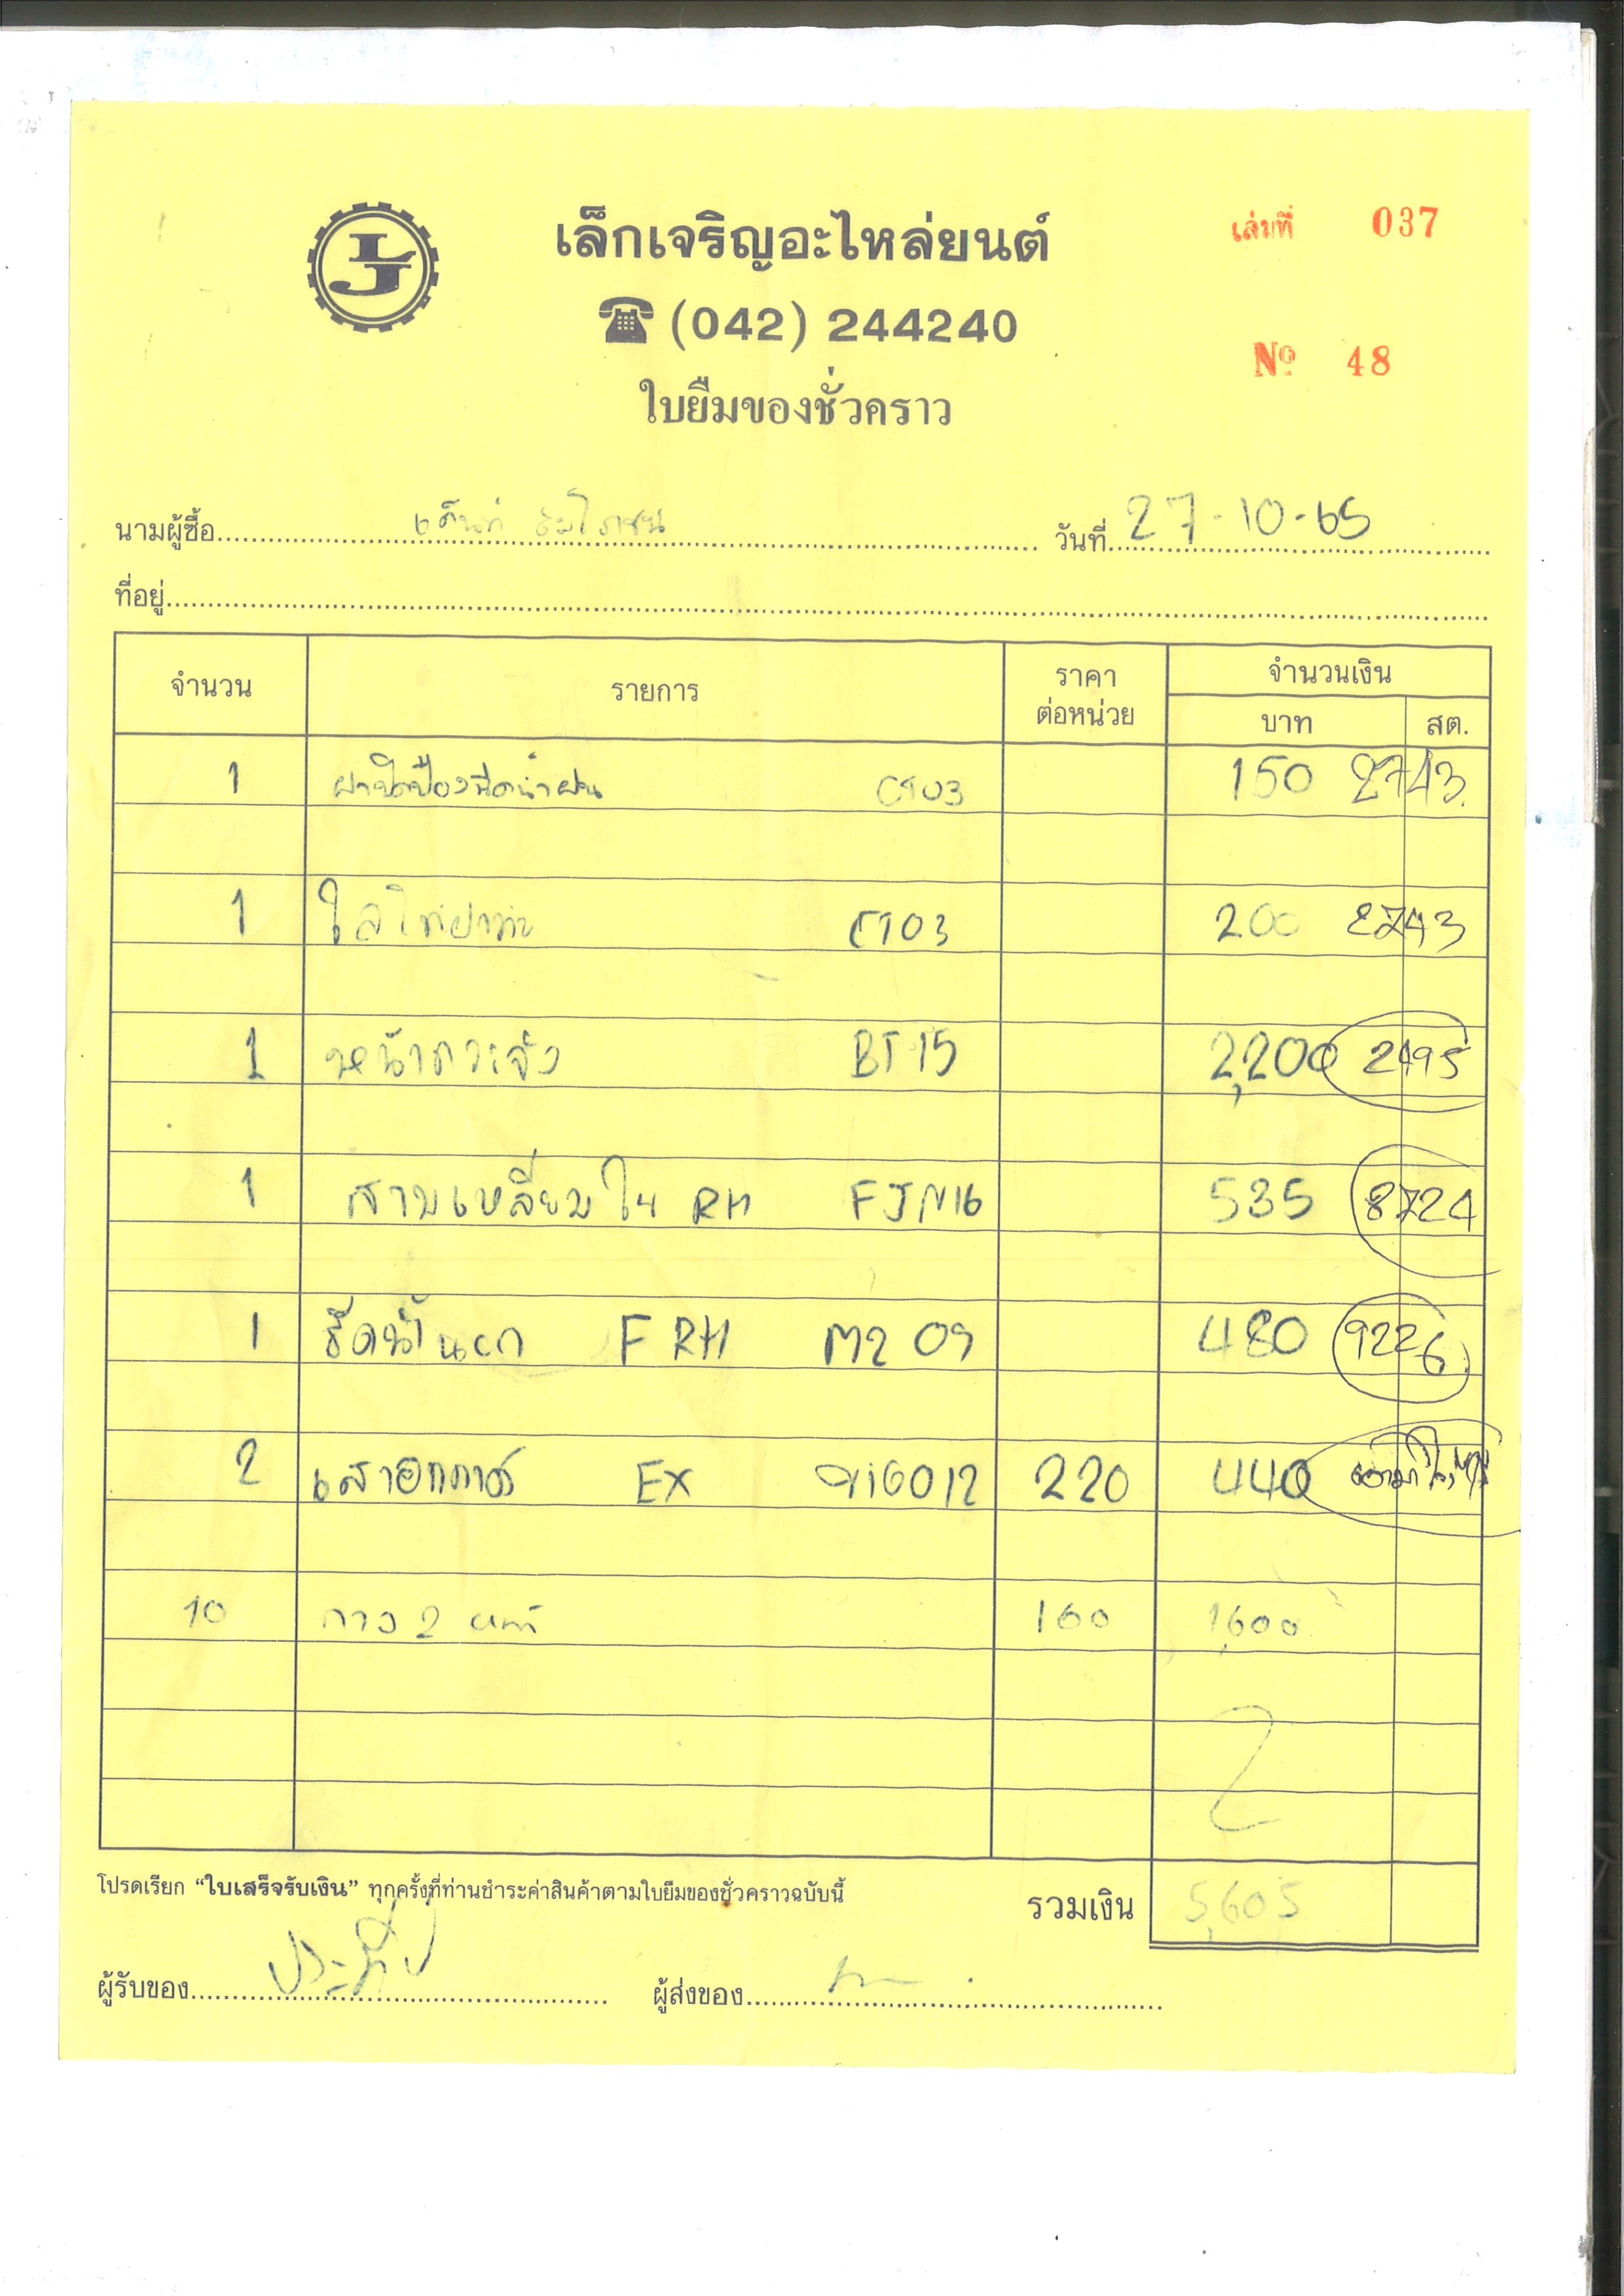 LJ
เล็กเจริญอะไหล่ยนต์
เล่มที่ 037
(042) 244240
Nº 48
ใบยืมของชั่วคราว
นามผู้ซื้อ
วันที่ 27-10-65
ที่อยู่
จำนวน รายการ ราคาต่อหน่วย จำนวนเงิน
บาท สต.
1 CT03 150 2743
1 CT03 200 2743
1 หน้ากระจัง BT15 2,200 2495
1 สามเหลี่ยมใน RH FJN16 535 8724
1 F RH M2 09 480 9226
2 เสาอากาศ EX 220 440
10 กาว 2 หน้า 160 1,600
โปรดเรียก “ใบเสร็จรับเงิน” ทุกครั้งที่ท่านชำระค่าสินค้าตามใบยืมของชั่วคราวฉบับนี้
รวมเงิน 5,605
ผู้รับของ ประทีป ผู้ส่งของ